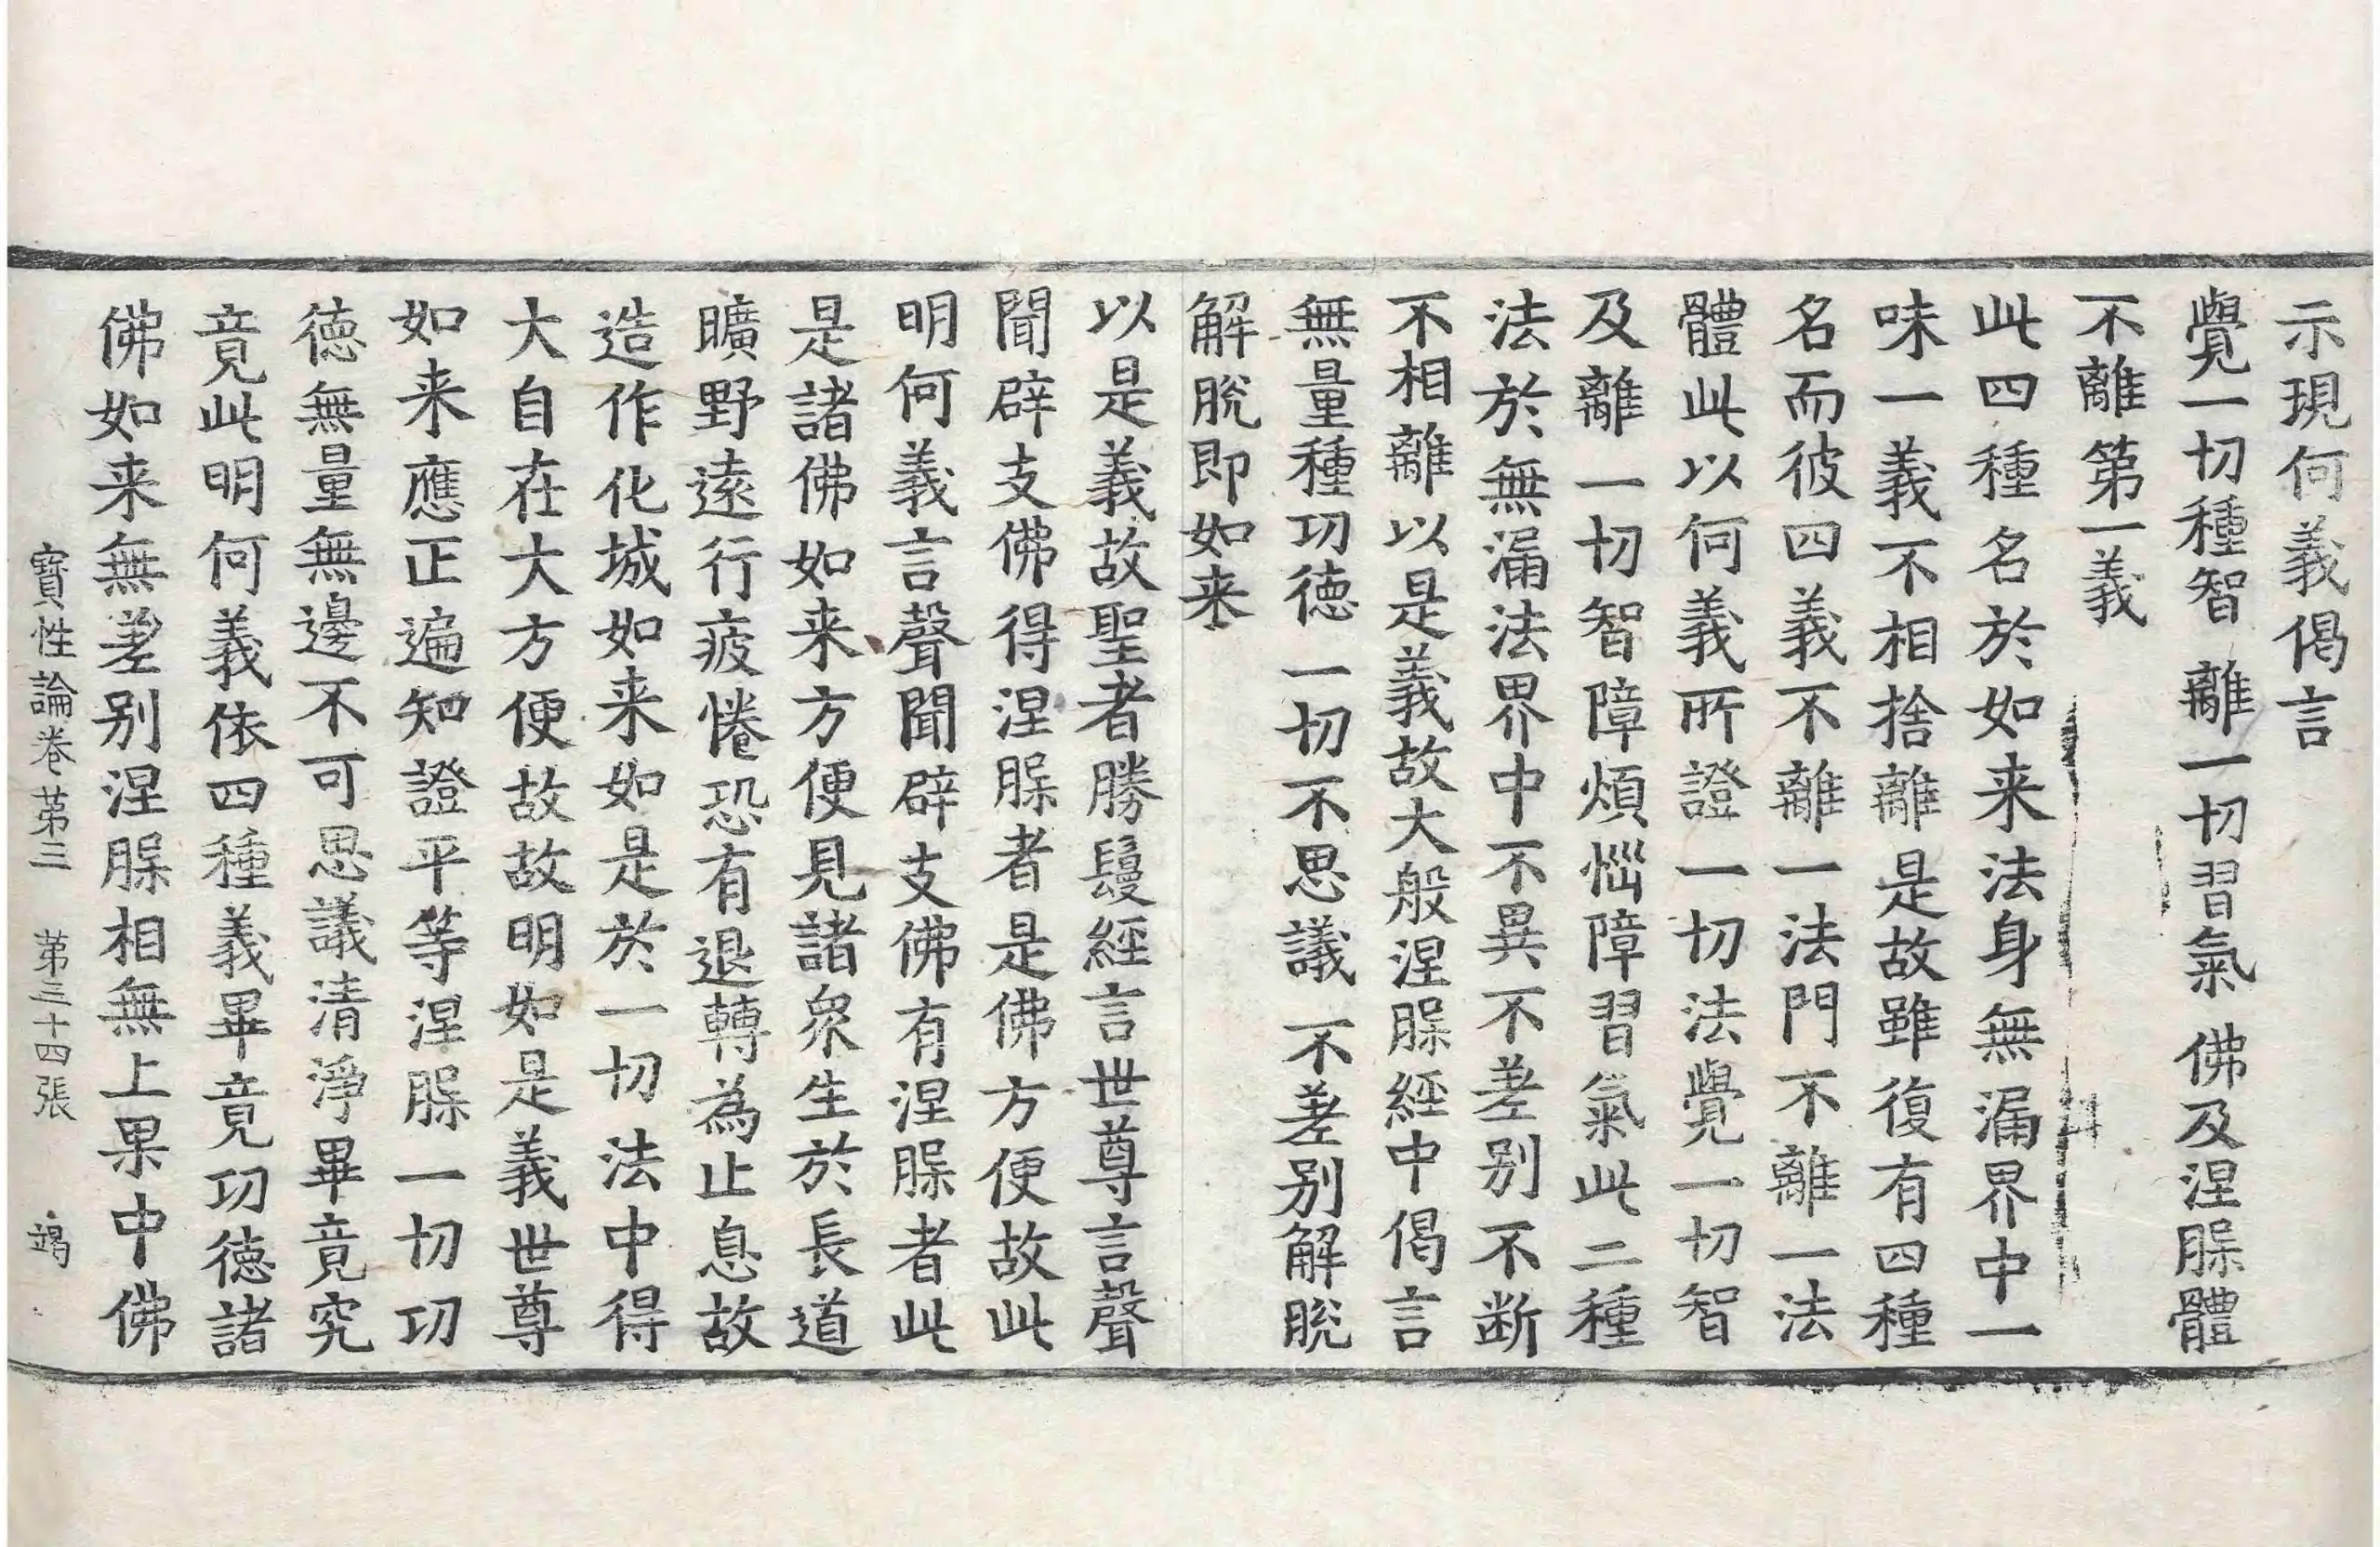 示現何義偈言
覺一切種智 離一切習氣 佛及涅槃體
不離第一義
此四種名於如来法身無漏界中一
味一義不相捨離是故雖復有四種
名而彼四義不離一法門不離一法
體此以何義所證一切法覺一切智
及離一切智障煩惱障習氣此二種
法於無漏法界中不異不差别不断
不相離以是義故大般涅槃經中偈言
無量種功徳 一切不思議 不差别解脫
解脫即如来
以是義故聖者勝鬘經言世尊言聲
聞辟支佛得涅槃者是佛方便故此
明何義言聲聞辟支佛有涅槃者此
是諸佛如来方便見諸衆生於長道
曠野遠行疲惓恐有退轉為止息故
造作化城如来如是於一切法中得
大自在大方便故故明如是義世尊
如来應正遍知證平等涅槃一切功
徳無量無邊不可思議清淨畢竟究
竟此明何義依四種義畢竟功徳諸
佛如来無差别涅槃相無上果中佛
寶性論卷第三 第三十四張 竭